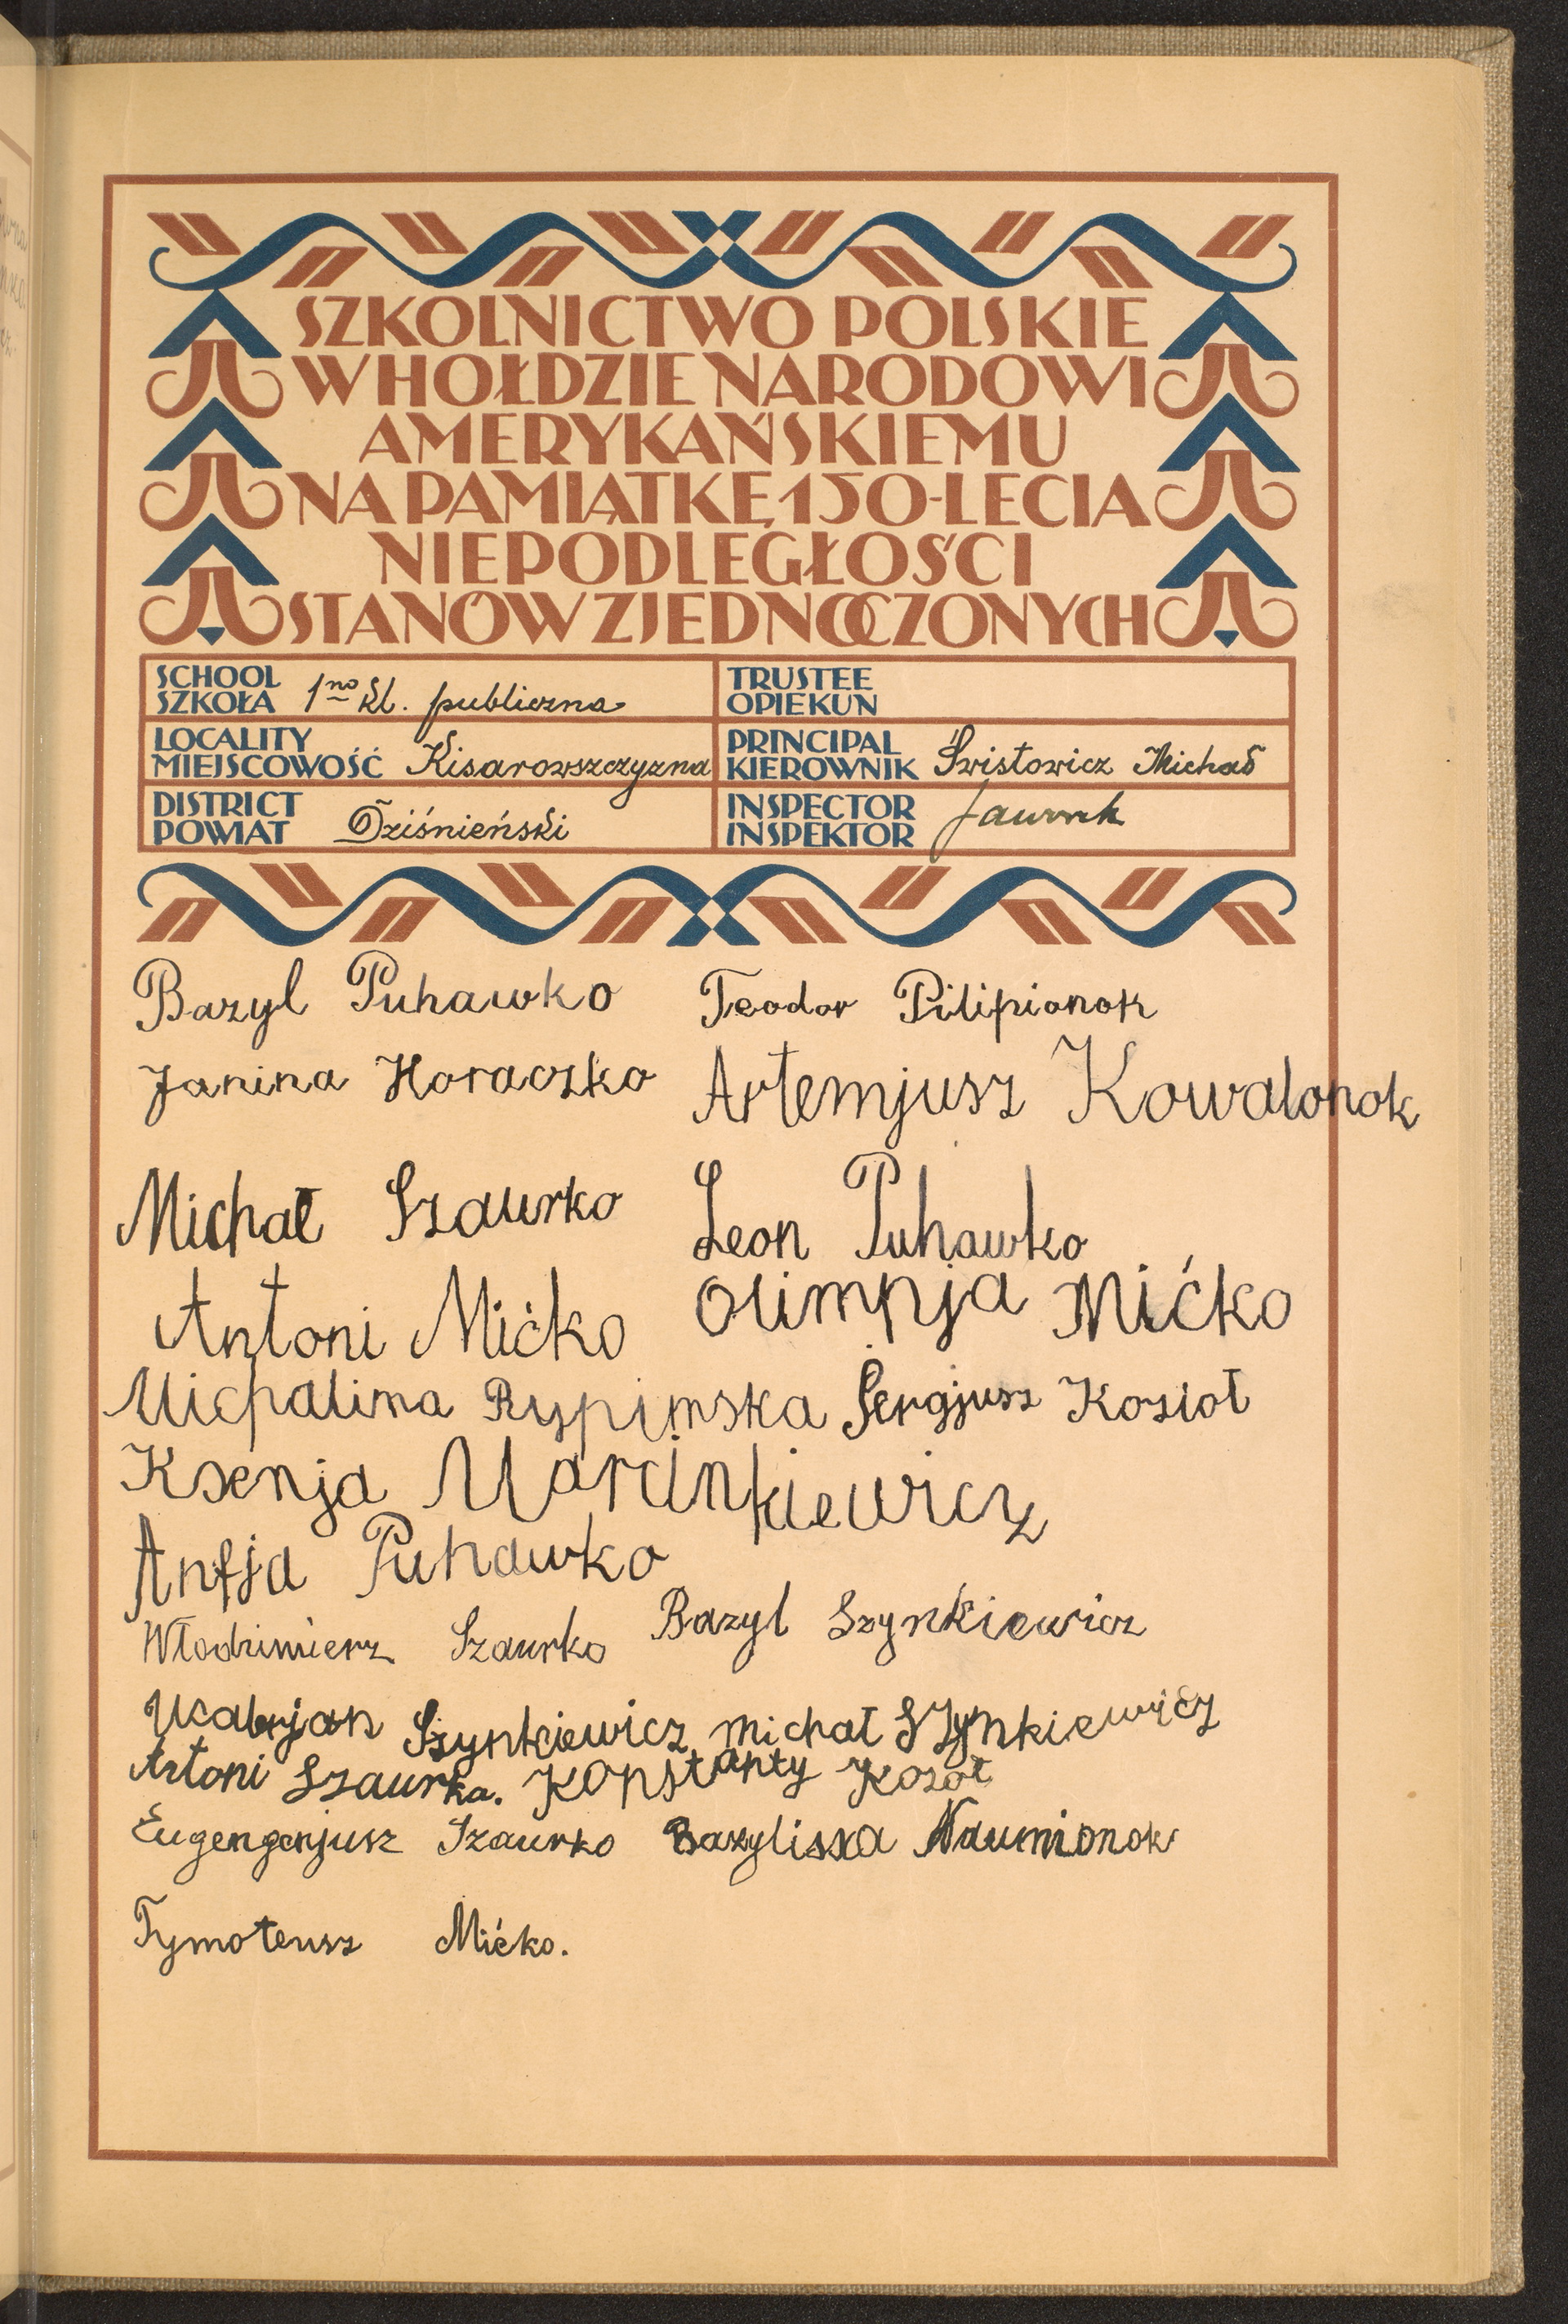 SZKOLNICTWO POLSKIE
W HOŁDZIE NARODOWI
AMERYKAŃSKIEMU
NA PAMIĄTKĘ 150-LECIA
NIEPODLEGŁOŚCI
STANÓW ZJEDNOCZONYCH
SCHOOL
SZKOŁA 1no kl. publiczna
TRUSTEE
OPIEKUN
LOCALITY
MIEJSCOWOŚĆ Kisarowszczyzna
PRINCIPAL
KIEROWNIK Świstowicz Michał
DISTRICT
POWIAT Dziśnieński
INSPECTOR
INSPEKTOR
Bazyl Puhawko Teodor Pilipionok
Janina Horaczko Artemjusz Kowalonok
Michał Szaurko Leon Puhawko
Antoni Mićko Olimpja Mićko
Michalina Rypimska Sergjusz Kozioł
Ksenja Marcinkiewicz
Anfja Puhawko
Włodzimierz Szaurko Bazyl Szynkiewicz
Szynkiewicz Michał Szynkiewicz
Antoni Szaurka. Konstanty Kozoł
Eugengenjusz Szaurko Bazylissa Naumionok
Tymoteusz Mićko.